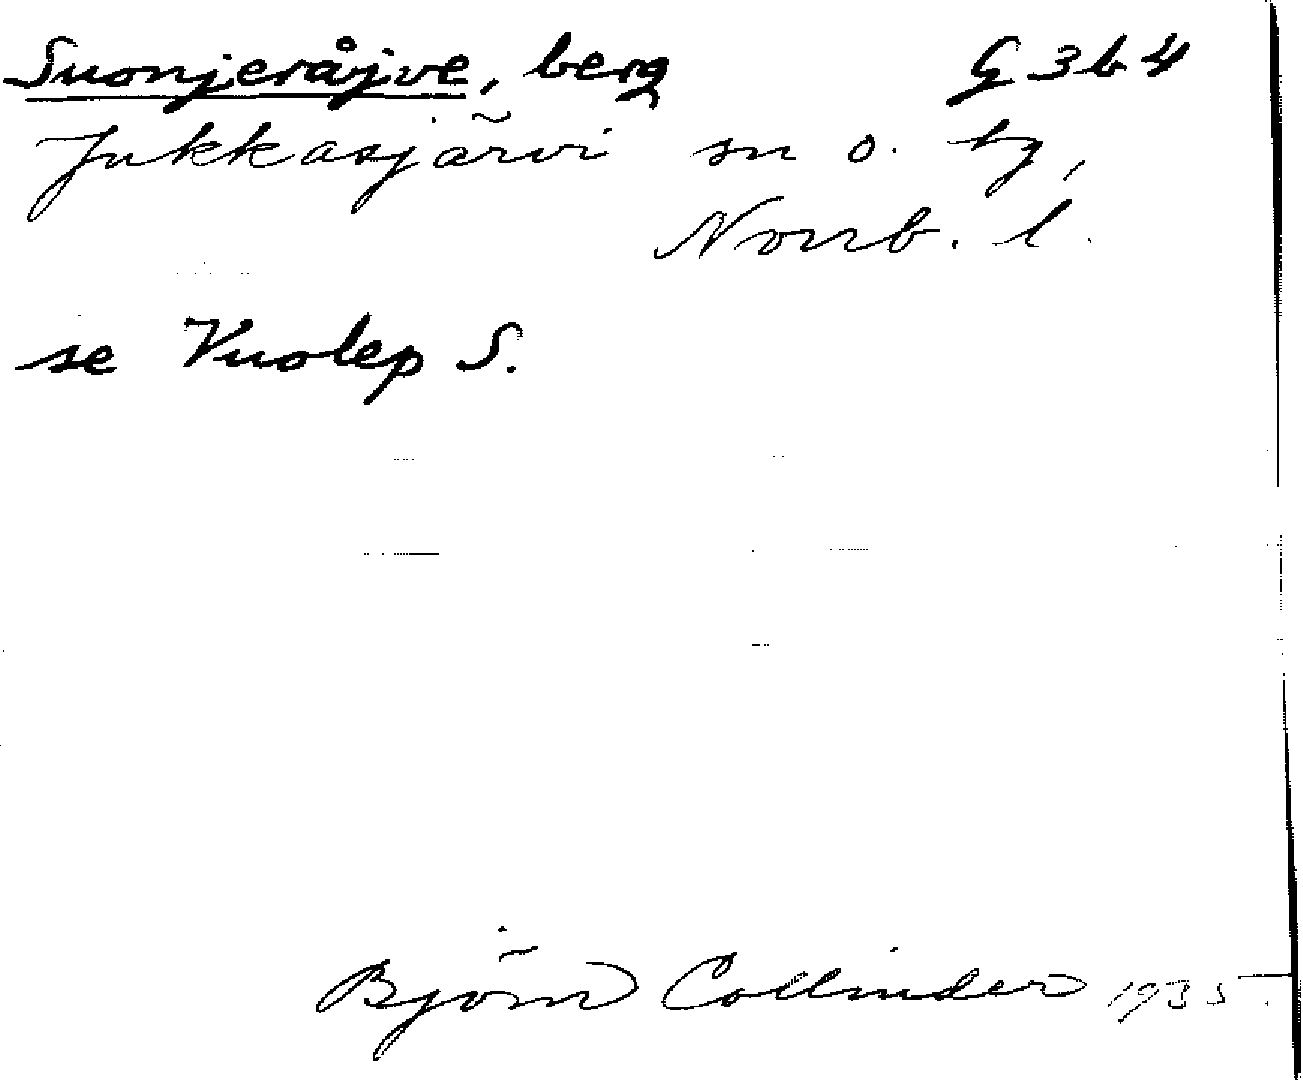 Suonjeråjve, berg G 3b4
Jukkasjärvi sn o. tg,
Norrb. l.
se Vuolep S.
Björn Collinder 1935